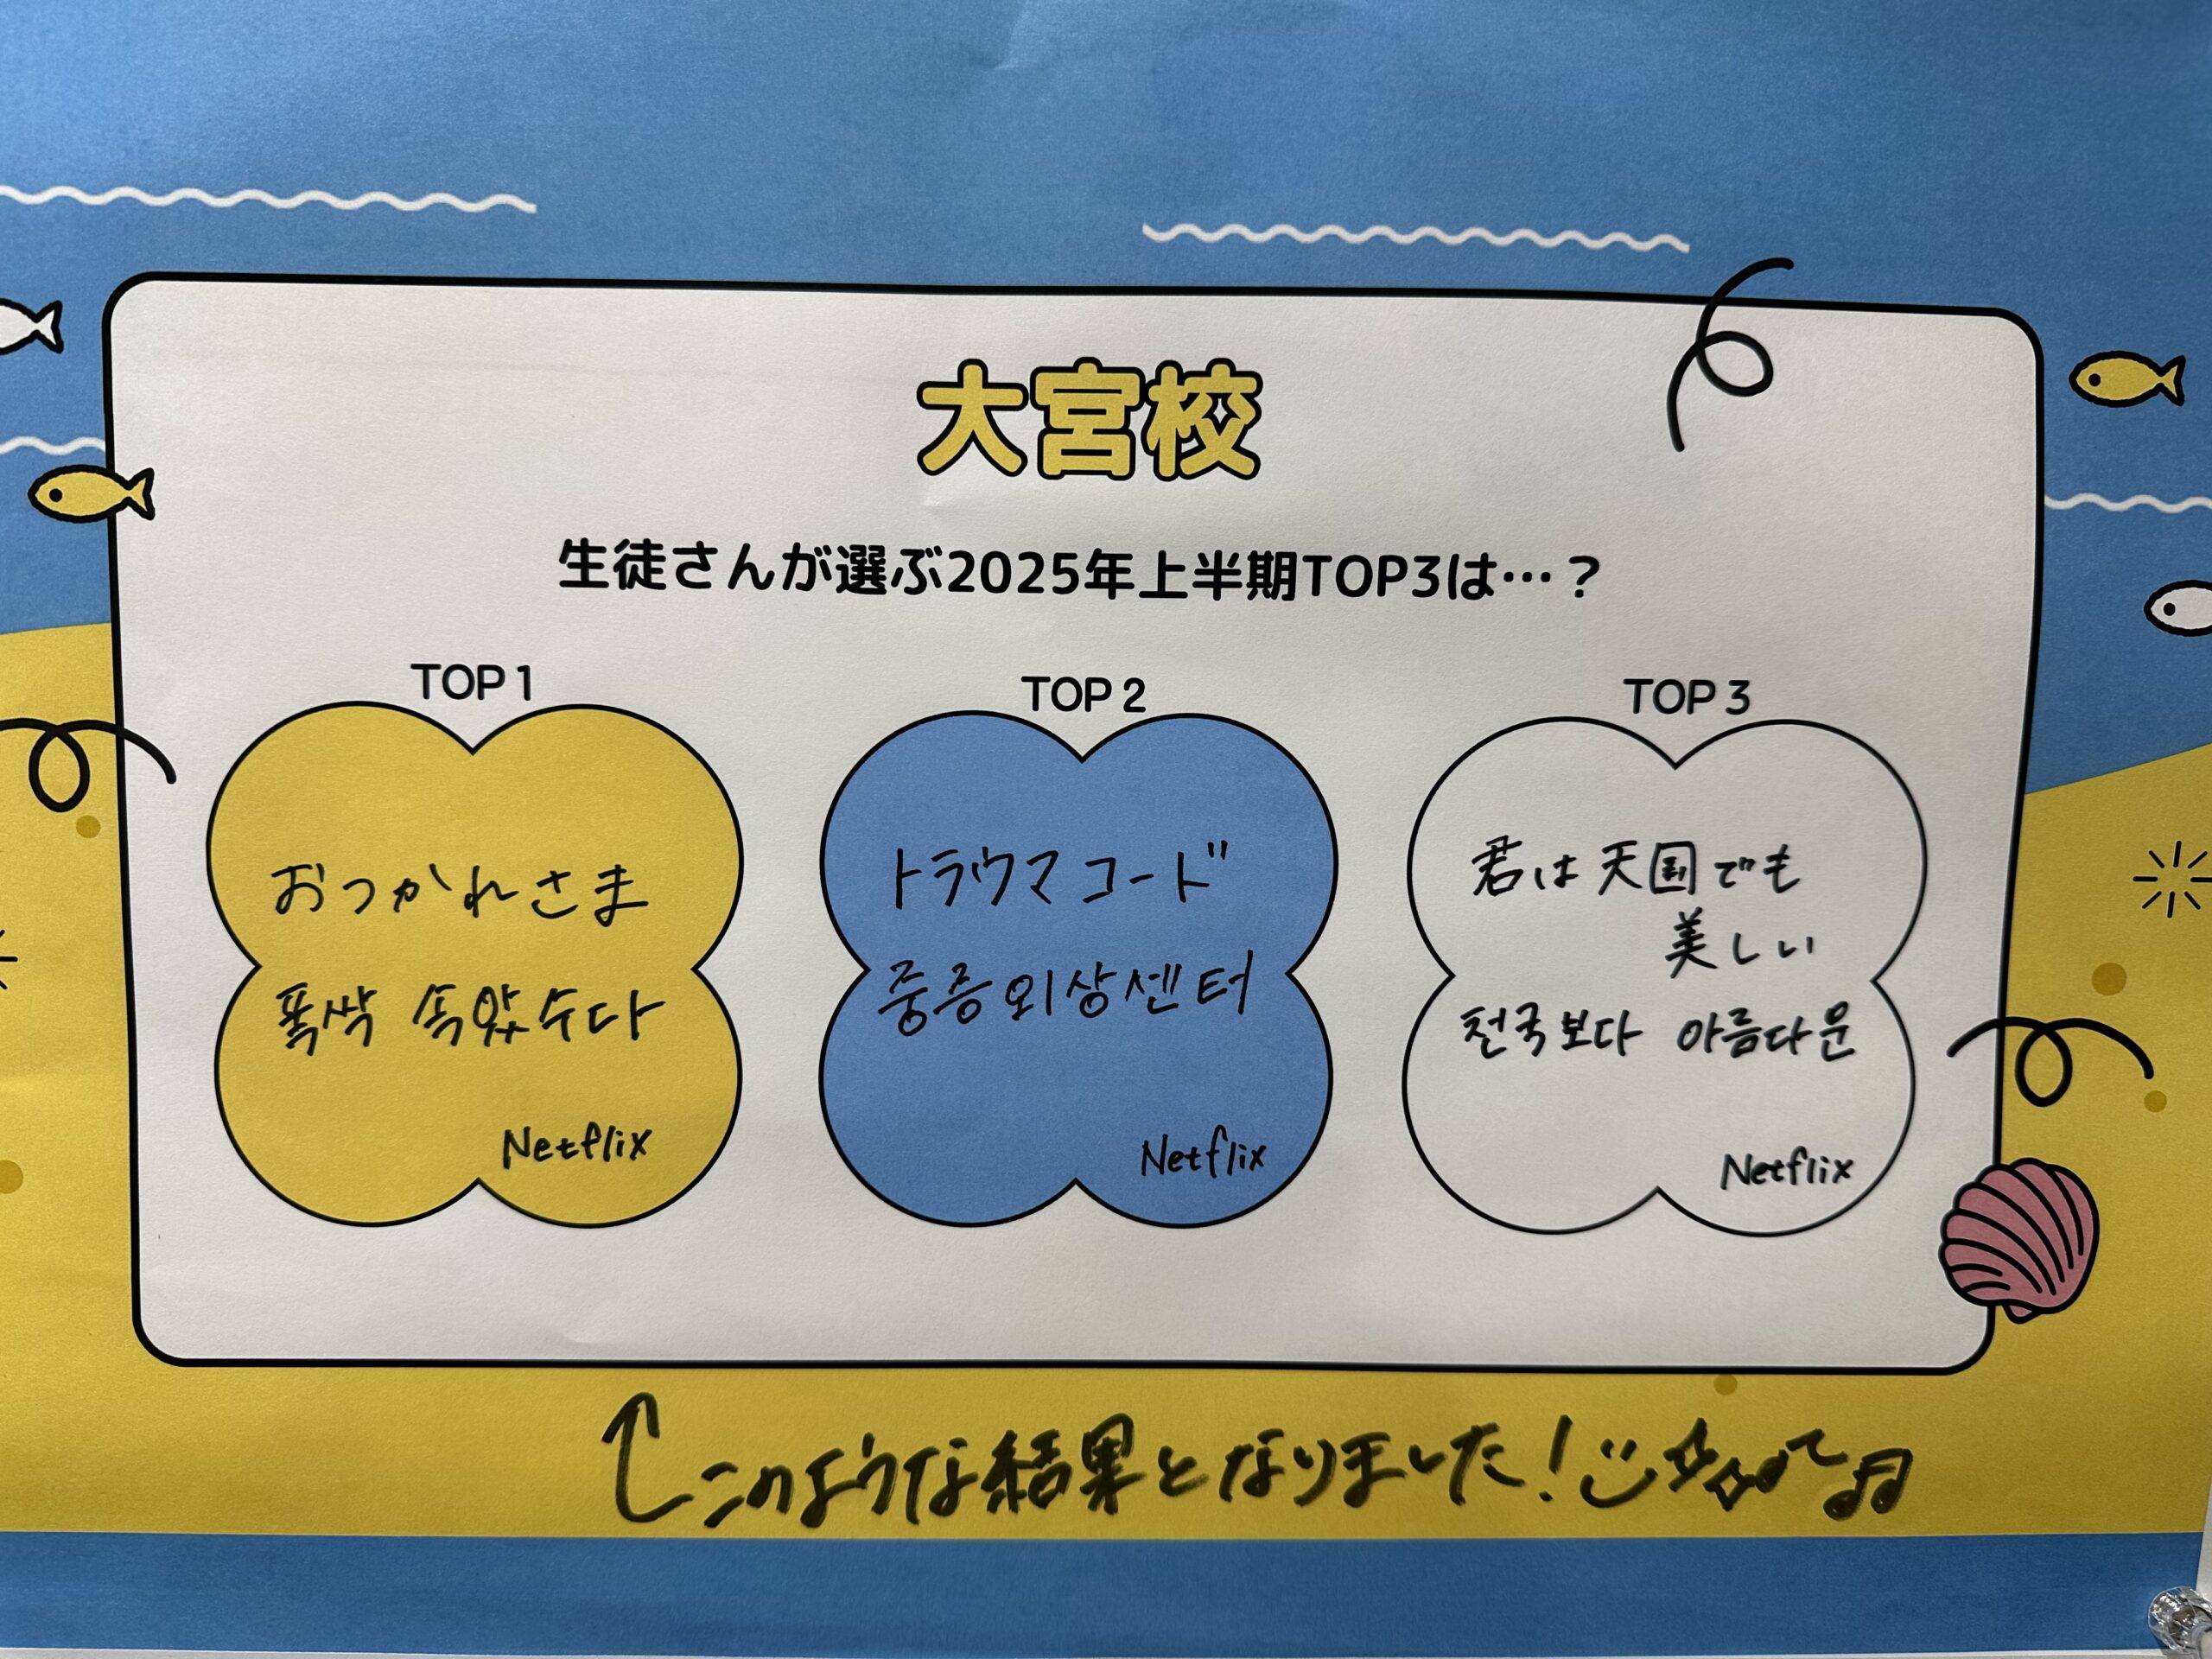 大宮校
生徒さんが選ぶ2025年上半期TOP3は…？
TOP 1
おつかれさま
폭싹 속았수다
Netflix
TOP 2
トラウマコード
중증외상센터
Netflix
TOP 3
君は天国でも
美しい
천국보다 아름다운
Netflix
このような結果となりました!